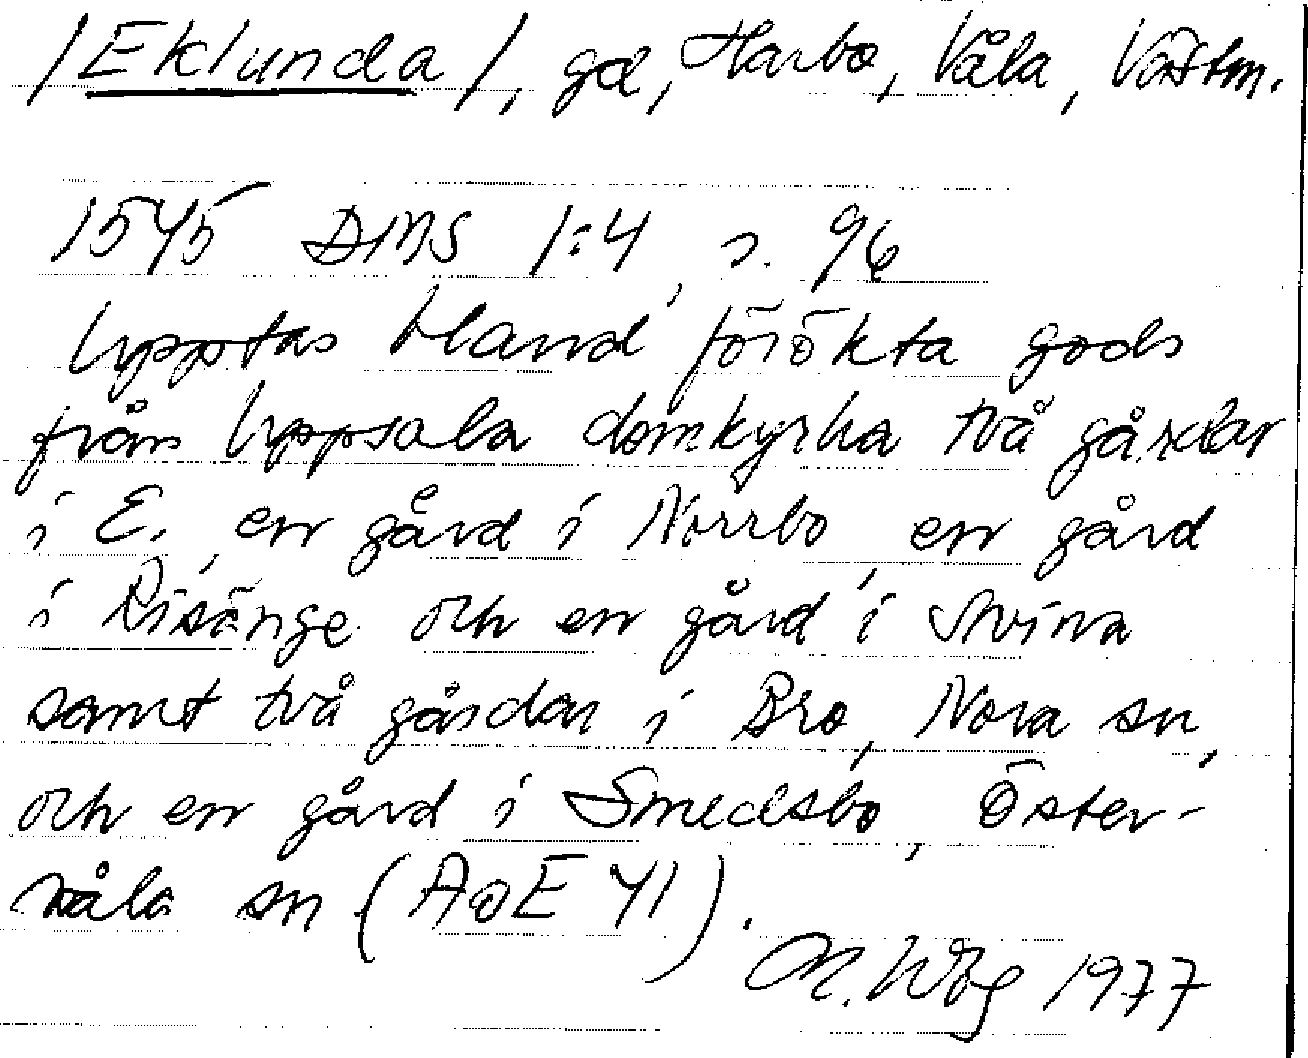 /Eklunda/, gd, Harbo, Våla, Västm.
1545 DMS 1:4, s. 96
Upptas bland förökta gods
från Uppsala domkyrka två gårdar
i E., en gård i Norrbo, en gård
i Risänge och en gård i Svina
samt två gårdar i Bro, Nora sn,
och en gård i Smedsbo, Öster-
våla sn (AoE 41).
M. Wbg 1977